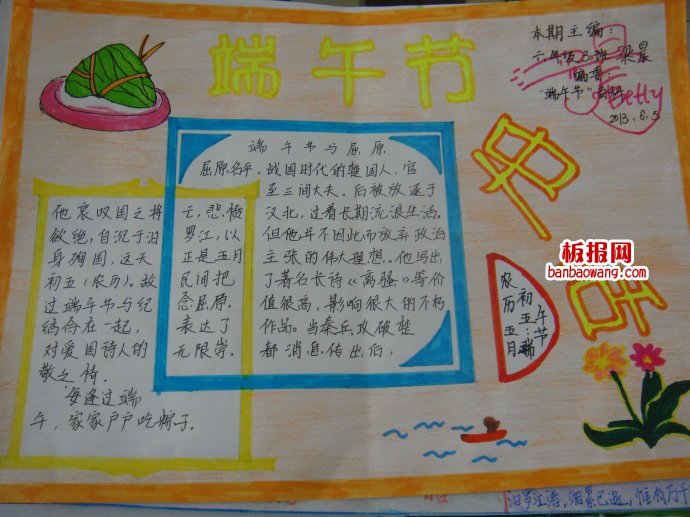 端午节
本期主编:
六年级3班 梁晨
编委:
"端午节"
Betty
2013.6.5
端午节与屈原
屈原名平,战国时代的楚国人,官
至三闾大夫。后被放逐于
汉北,过着长期流浪生活。
但他并不因此而放弃政治
主张的伟大理想。他写出
了著名长诗《离骚》等价
值很高,影响很大的不朽
作品。当秦兵攻破楚
都消息传出伯,
他哀叹国之将亡,悲愤
欲绝,自沉于汨罗江,以
身殉国,这天正是五月
初五(农历)。故民间把
过端午节与纪念屈原
结合在一起,表达了
对爱国诗人的无限崇
敬之情.
每逢过端
午,家家户户吃粽子.
农历五月
初五:端
午节
板报网
banbaowang.com
汨罗江渚,湘累已逝,惟有万千